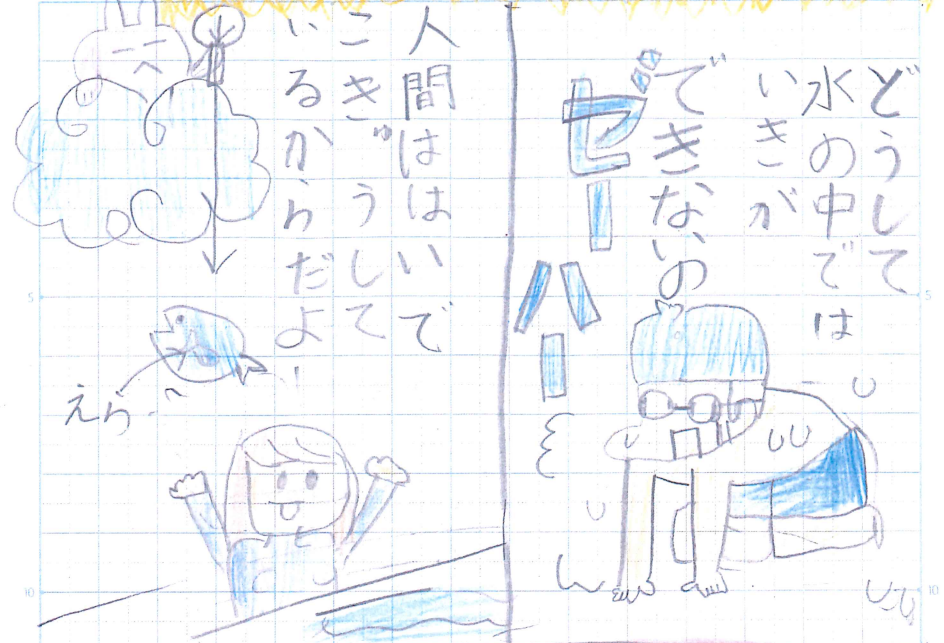 どうして
水の中では
いきが
できないの
ゼーハー
人間ははいで
こきゅうして
いるからだよ!
えら
5
10
5
10